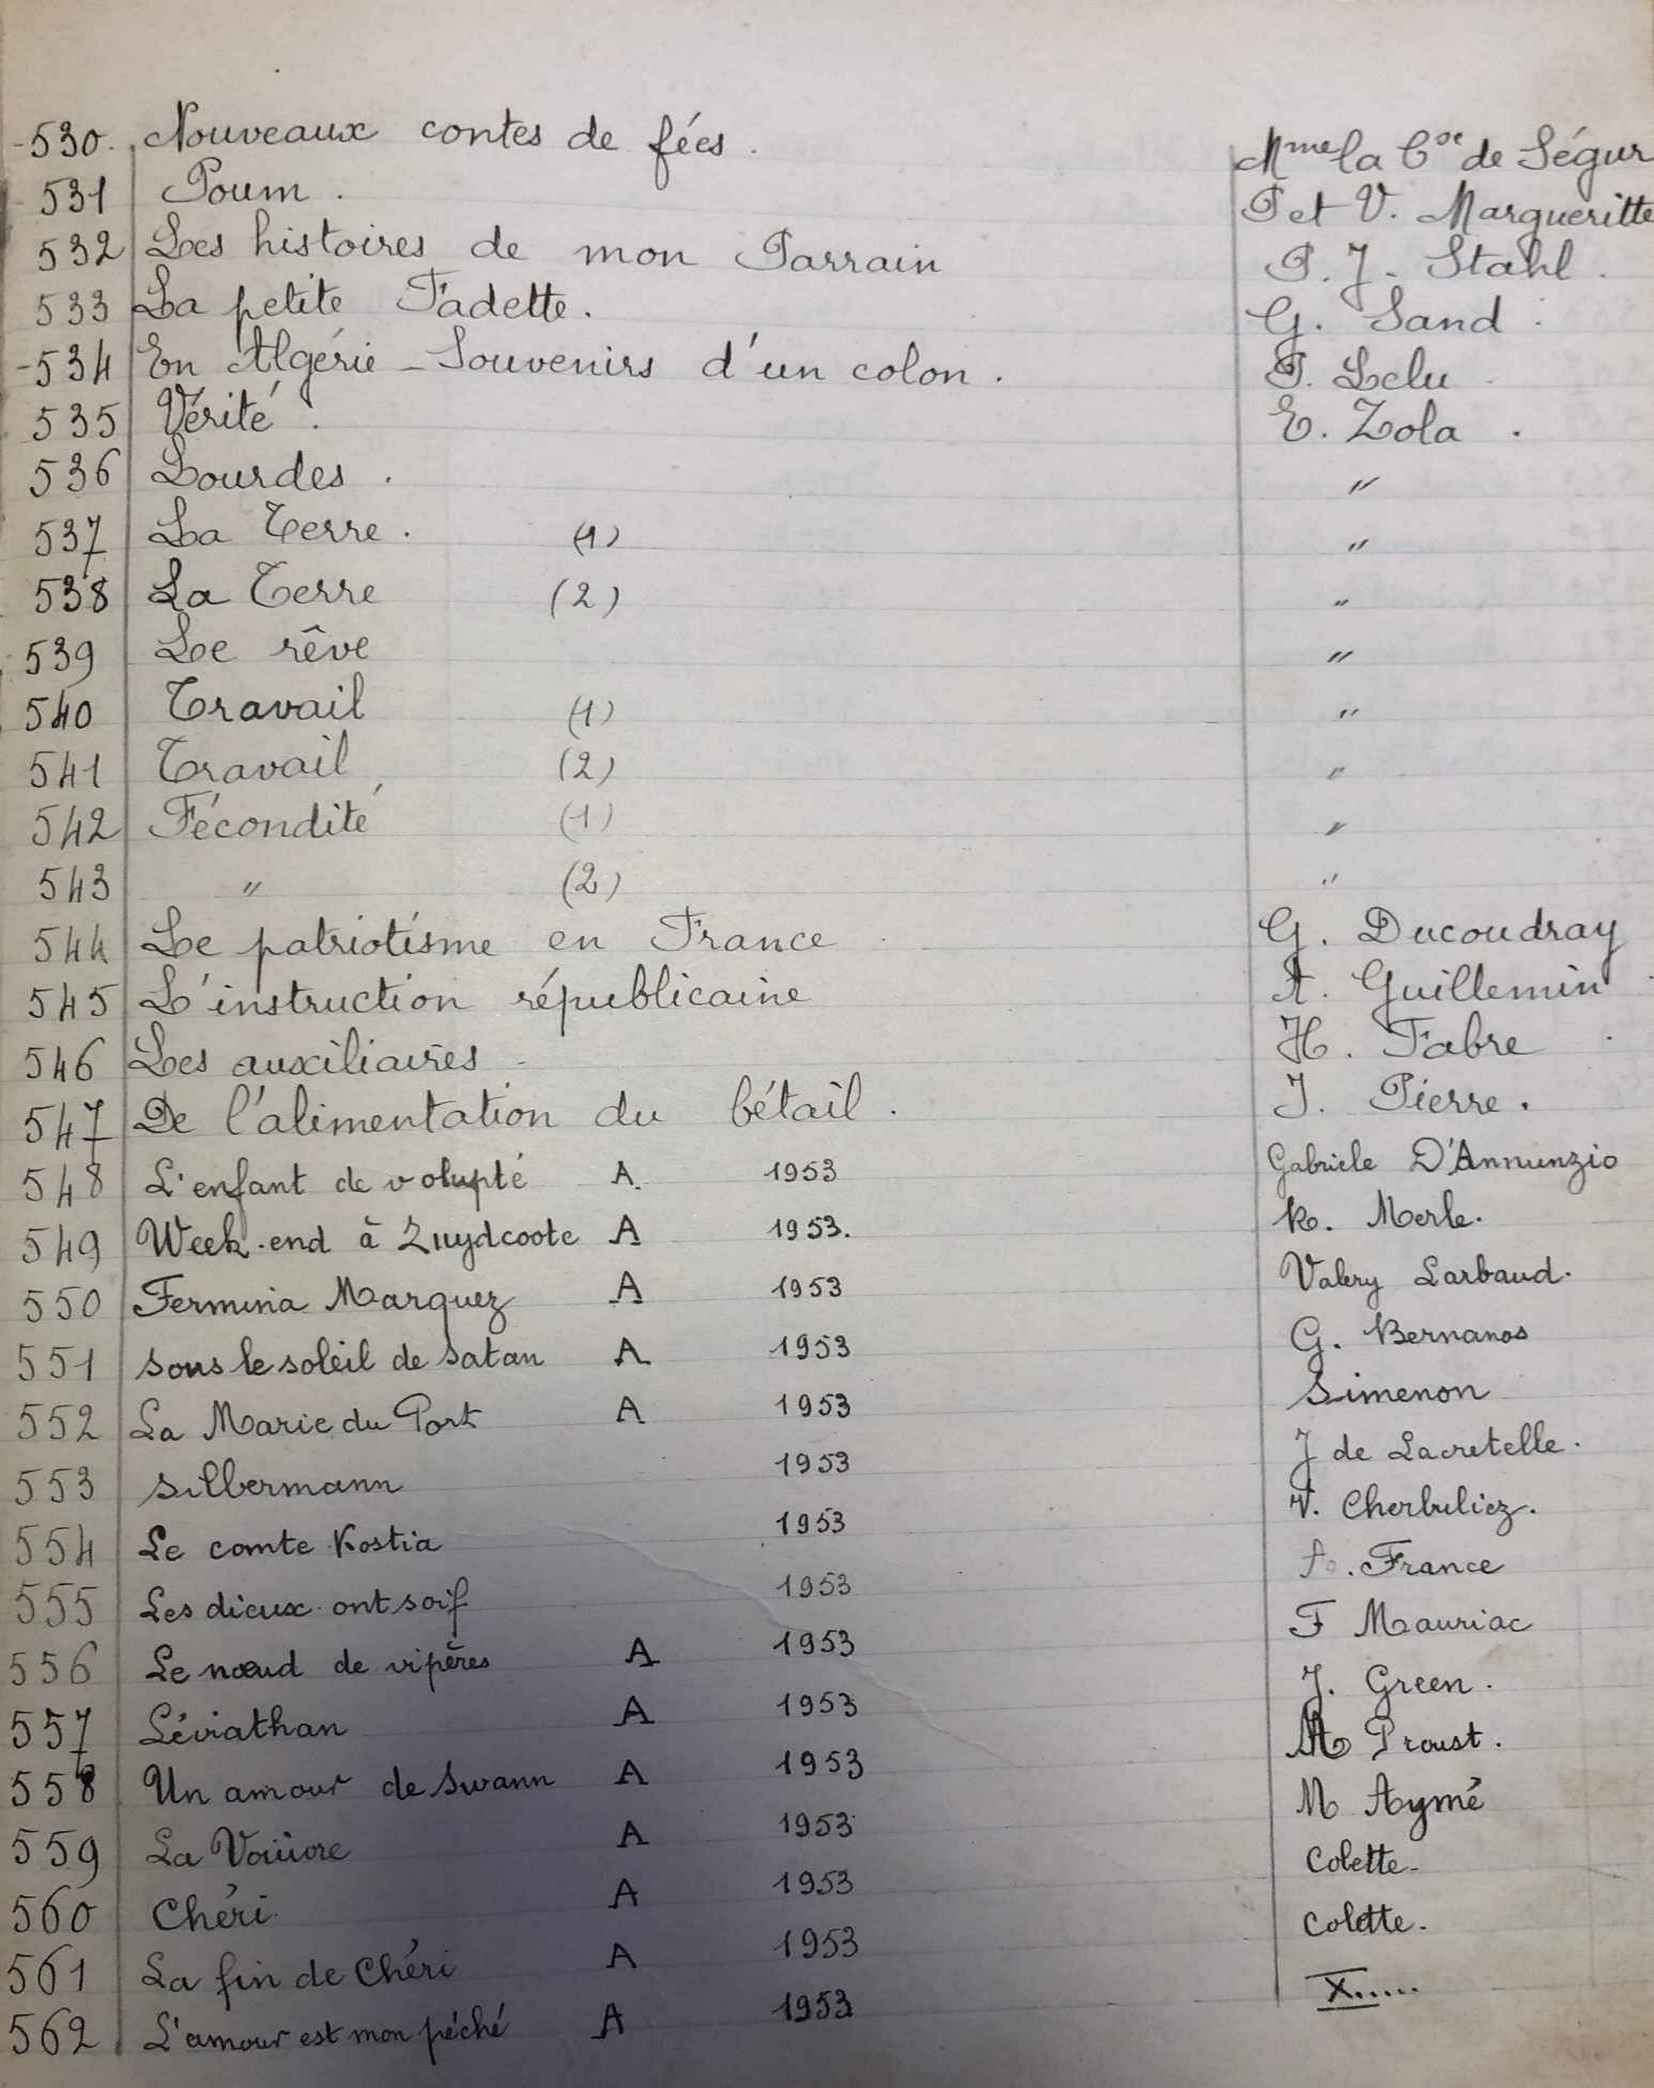 530. Nouveaux contes de fées. Mme la Ctesse de Ségur
531 Poum. P et V. Margueritte
532 Les histoires de mon Parrain P. J. Stahl.
533 La petite Fadette. G. Sand.
534 En Algérie - Souvenirs d'un colon. P. Lelu
535 Vérité. E. Zola.
536 Lourdes. "
537 La Terre. (1) "
538 La Terre (2) "
539 Le rêve "
540 Travail (1) "
541 Travail (2) "
542 Fécondité (1) "
543 " (2) "
544 Le patriotisme en France G. Ducoudray
545 L'instruction républicaine A. Guillemin
546 Les auxiliaires H. Fabre
547 De l'alimentation du bétail. J. Pierre.
548 L'enfant de volupté A. 1953 Gabriele D'Annunzio
549 Week-end à Zuydcoote A 1953. R. Merle.
550 Fermina Marquez A 1953 Valery Larbaud.
551 sous le soleil de satan A 1953 G. Bernanos
552 La Marie du Port A 1953 Simenon
553 Silbermann 1953 J de Lacretelle.
554 Le comte Kostia 1953 V. Cherbuliez.
555 Les dieux ont soif 1953 A. France
556 Le nœud de vipères A 1953 F Mauriac
557 Léviathan A 1953 J. Green.
558 Un amour de Swann A 1953 M Proust.
559 La Vouivre A 1953 M Aymé
560 Chéri A 1953 Colette-
561 La fin de Chéri A 1953 Colette.
562 L'amour est mon péché A 1953 X.....